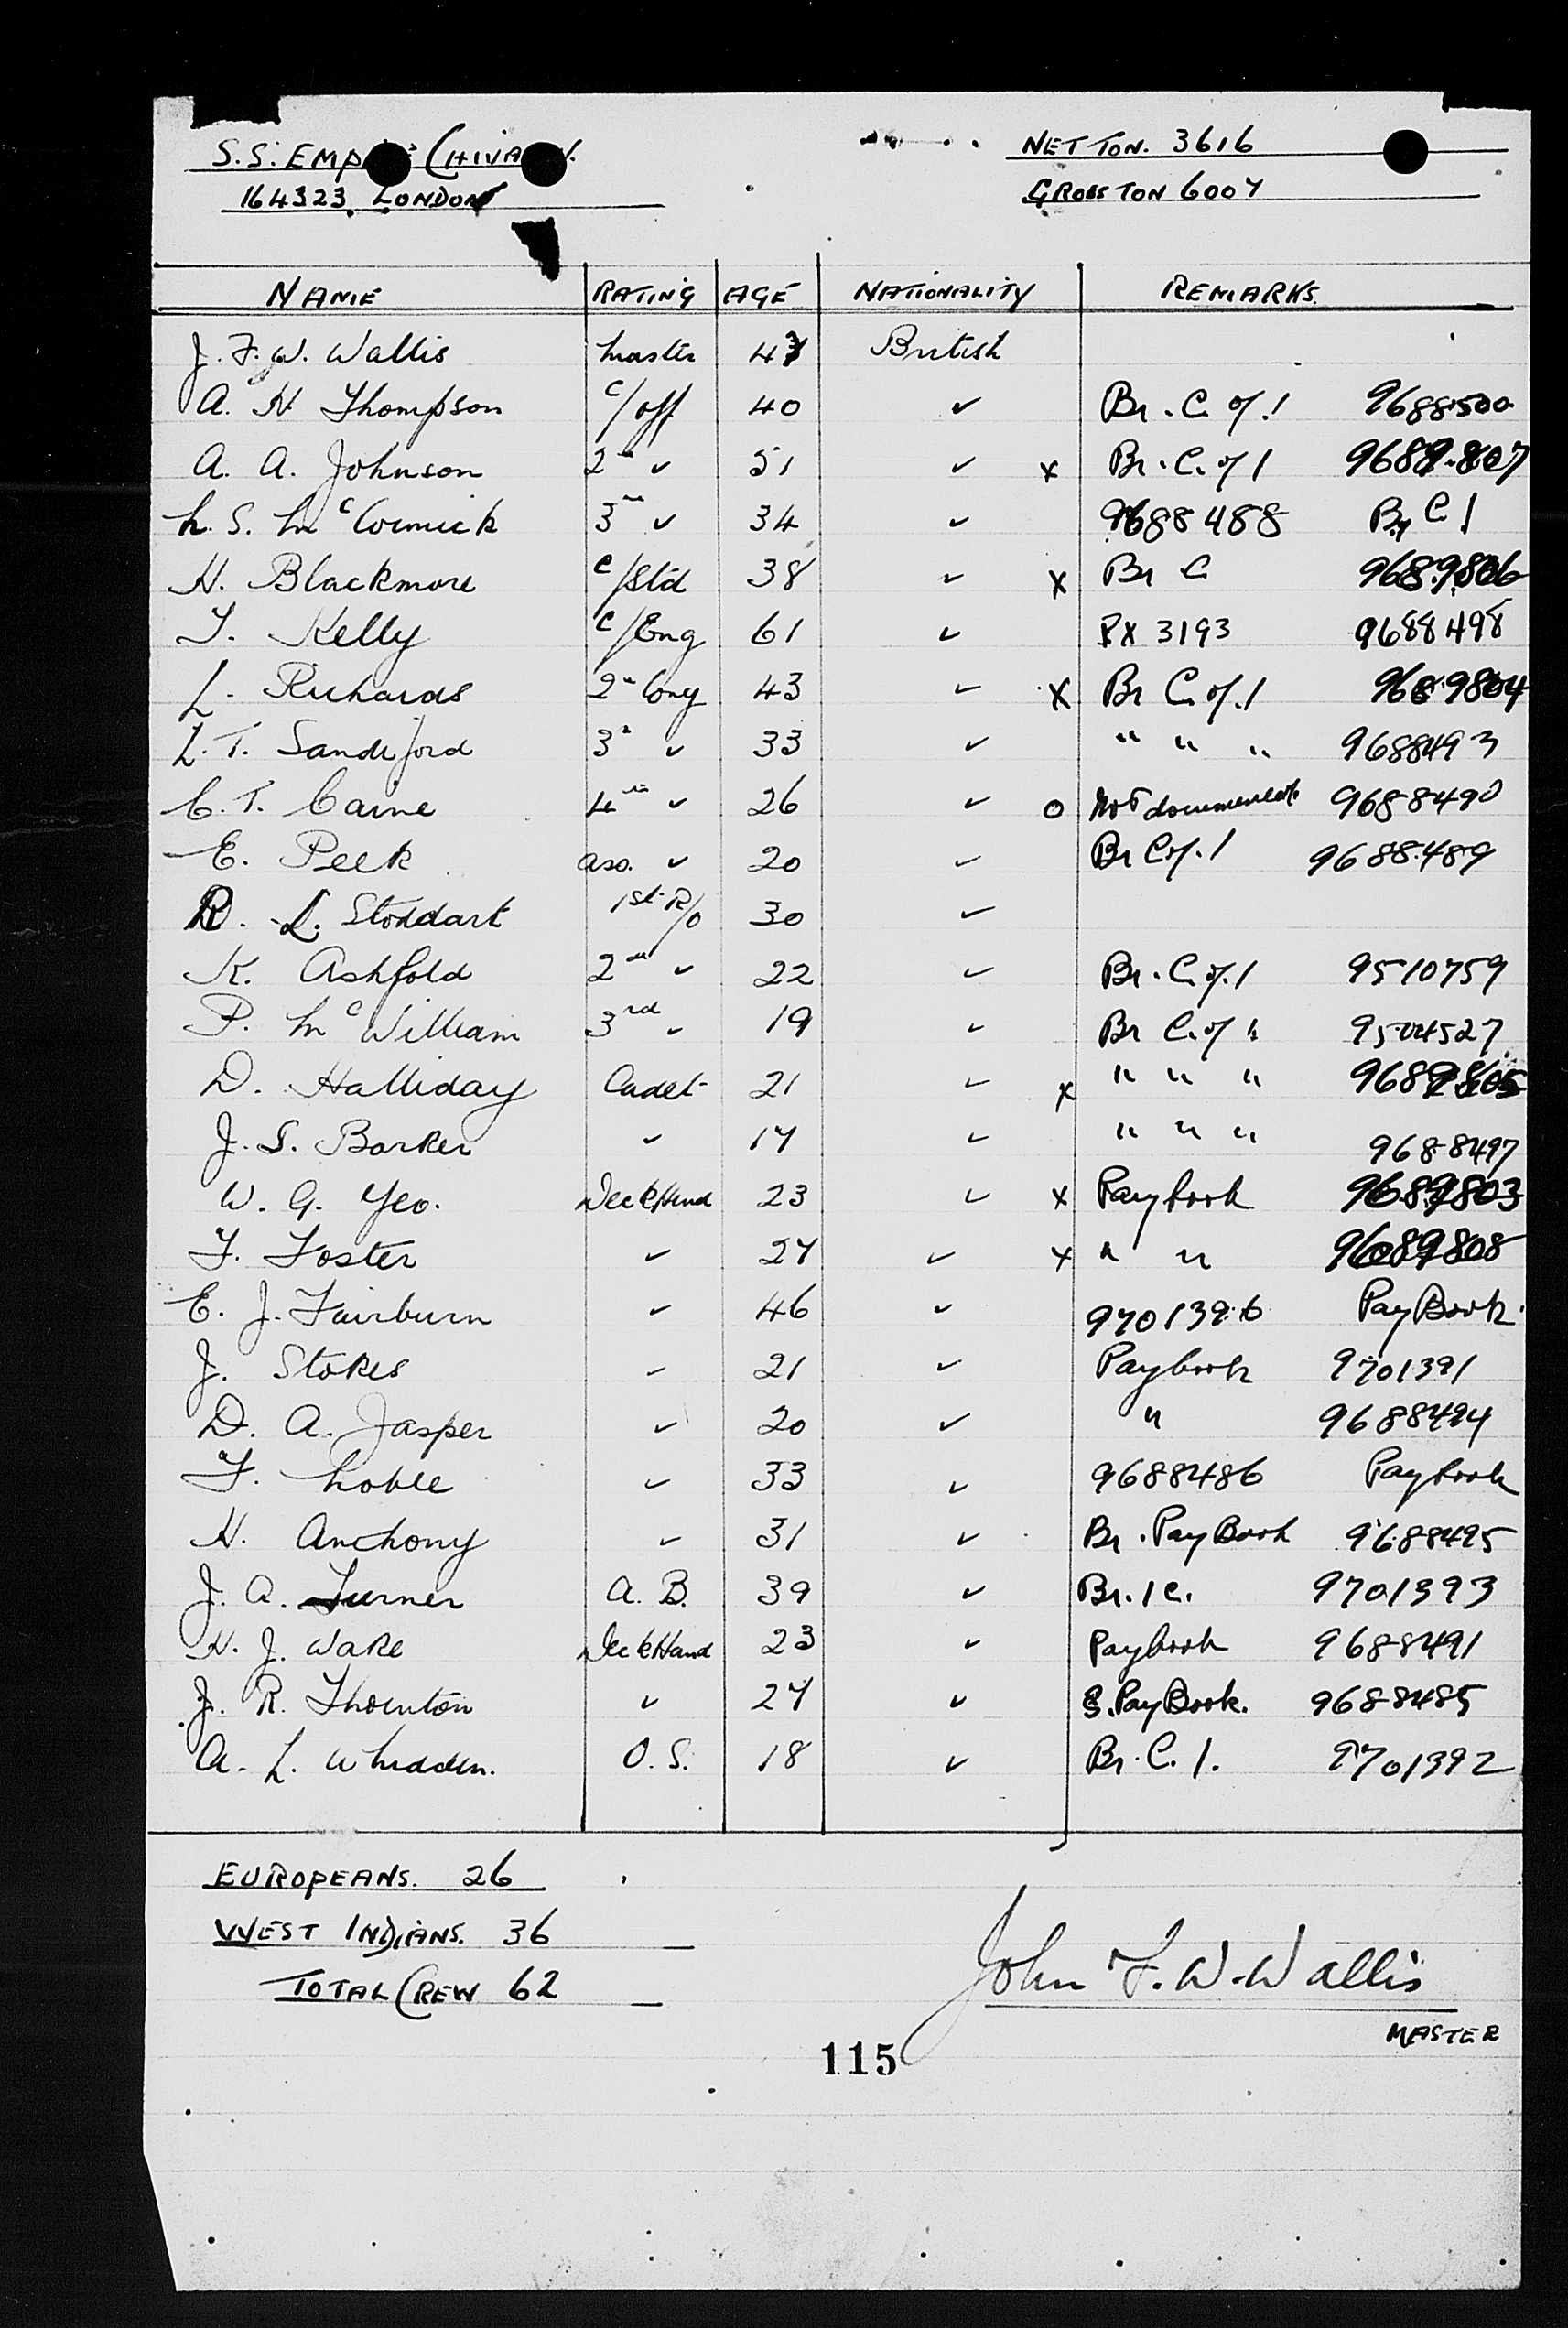 S.S. EMP CHIVA
NET TON. 3616
164323. LONDON
GROSS TON 6007
NAME RATING AGE NATIONALITY REMARKS.
J. F. W. Wallis Master 43 British
A. H. Thompson C/off 40 ✓ Br. C. of. I 9688500
A. A. Johnson 2nd ✓ 51 ✓ x Br. C. of I 9689807
M. S. McCormick 3rd ✓ 34 ✓ 9688488 Br C I
H. Blackmore C/Std 38 ✓ x Br C 9689806
T. Kelly C/Eng 61 ✓ 3193 9688498
L. Richards 2nd Eng 43 ✓ x Br C. of. I 9689804
L. T. Sandiford 3rd ✓ 33 ✓ " " " 9688493
C. T. Caine 4th ✓ 26 ✓ o Not documented 9688490
E. Peek ass. ✓ 20 ✓ Br C of. I 9688489
R. L. Stoddart 1st R/o 30 ✓
K. Ashfold 2nd ✓ 22 ✓ Br. C. of. I 9510759
P. McWilliam 3rd ✓ 19 ✓ Br C. of " 9504527
D. Halliday Cadet 21 ✓ x " " " 9689805
J. S. Barker ✓ 17 ✓ " " " 9688497
W. G. Yeo. Deck Hand 23 ✓ x Paybook 9689803
F. Foster ✓ 27 ✓ x " " 9689808
E. J. Fairburn ✓ 46 ✓ 9701396 Pay Book.
J. Stokes ✓ 21 ✓ Paybook 9701391
D. A. Jasper ✓ 20 ✓ " 9688494
F. Noble ✓ 33 ✓ 9688486 Paybook
H. Anchony ✓ 31 ✓ Br. Pay Book 9688495
J. A. Turner A. B. 39 ✓ Br. I C. 9701393
H. J. Wake Deck Hand 23 ✓ Paybook 9688491
J. R. Thornton ✓ 27 ✓ Pay Book. 9688485
A. L. Whidden. O. S. 18 ✓ Br. C. I. 9701392
EUROPEANS. 26
WEST INDIANS. 36
TOTAL CREW 62
John F. W. Wallis
MASTER
115